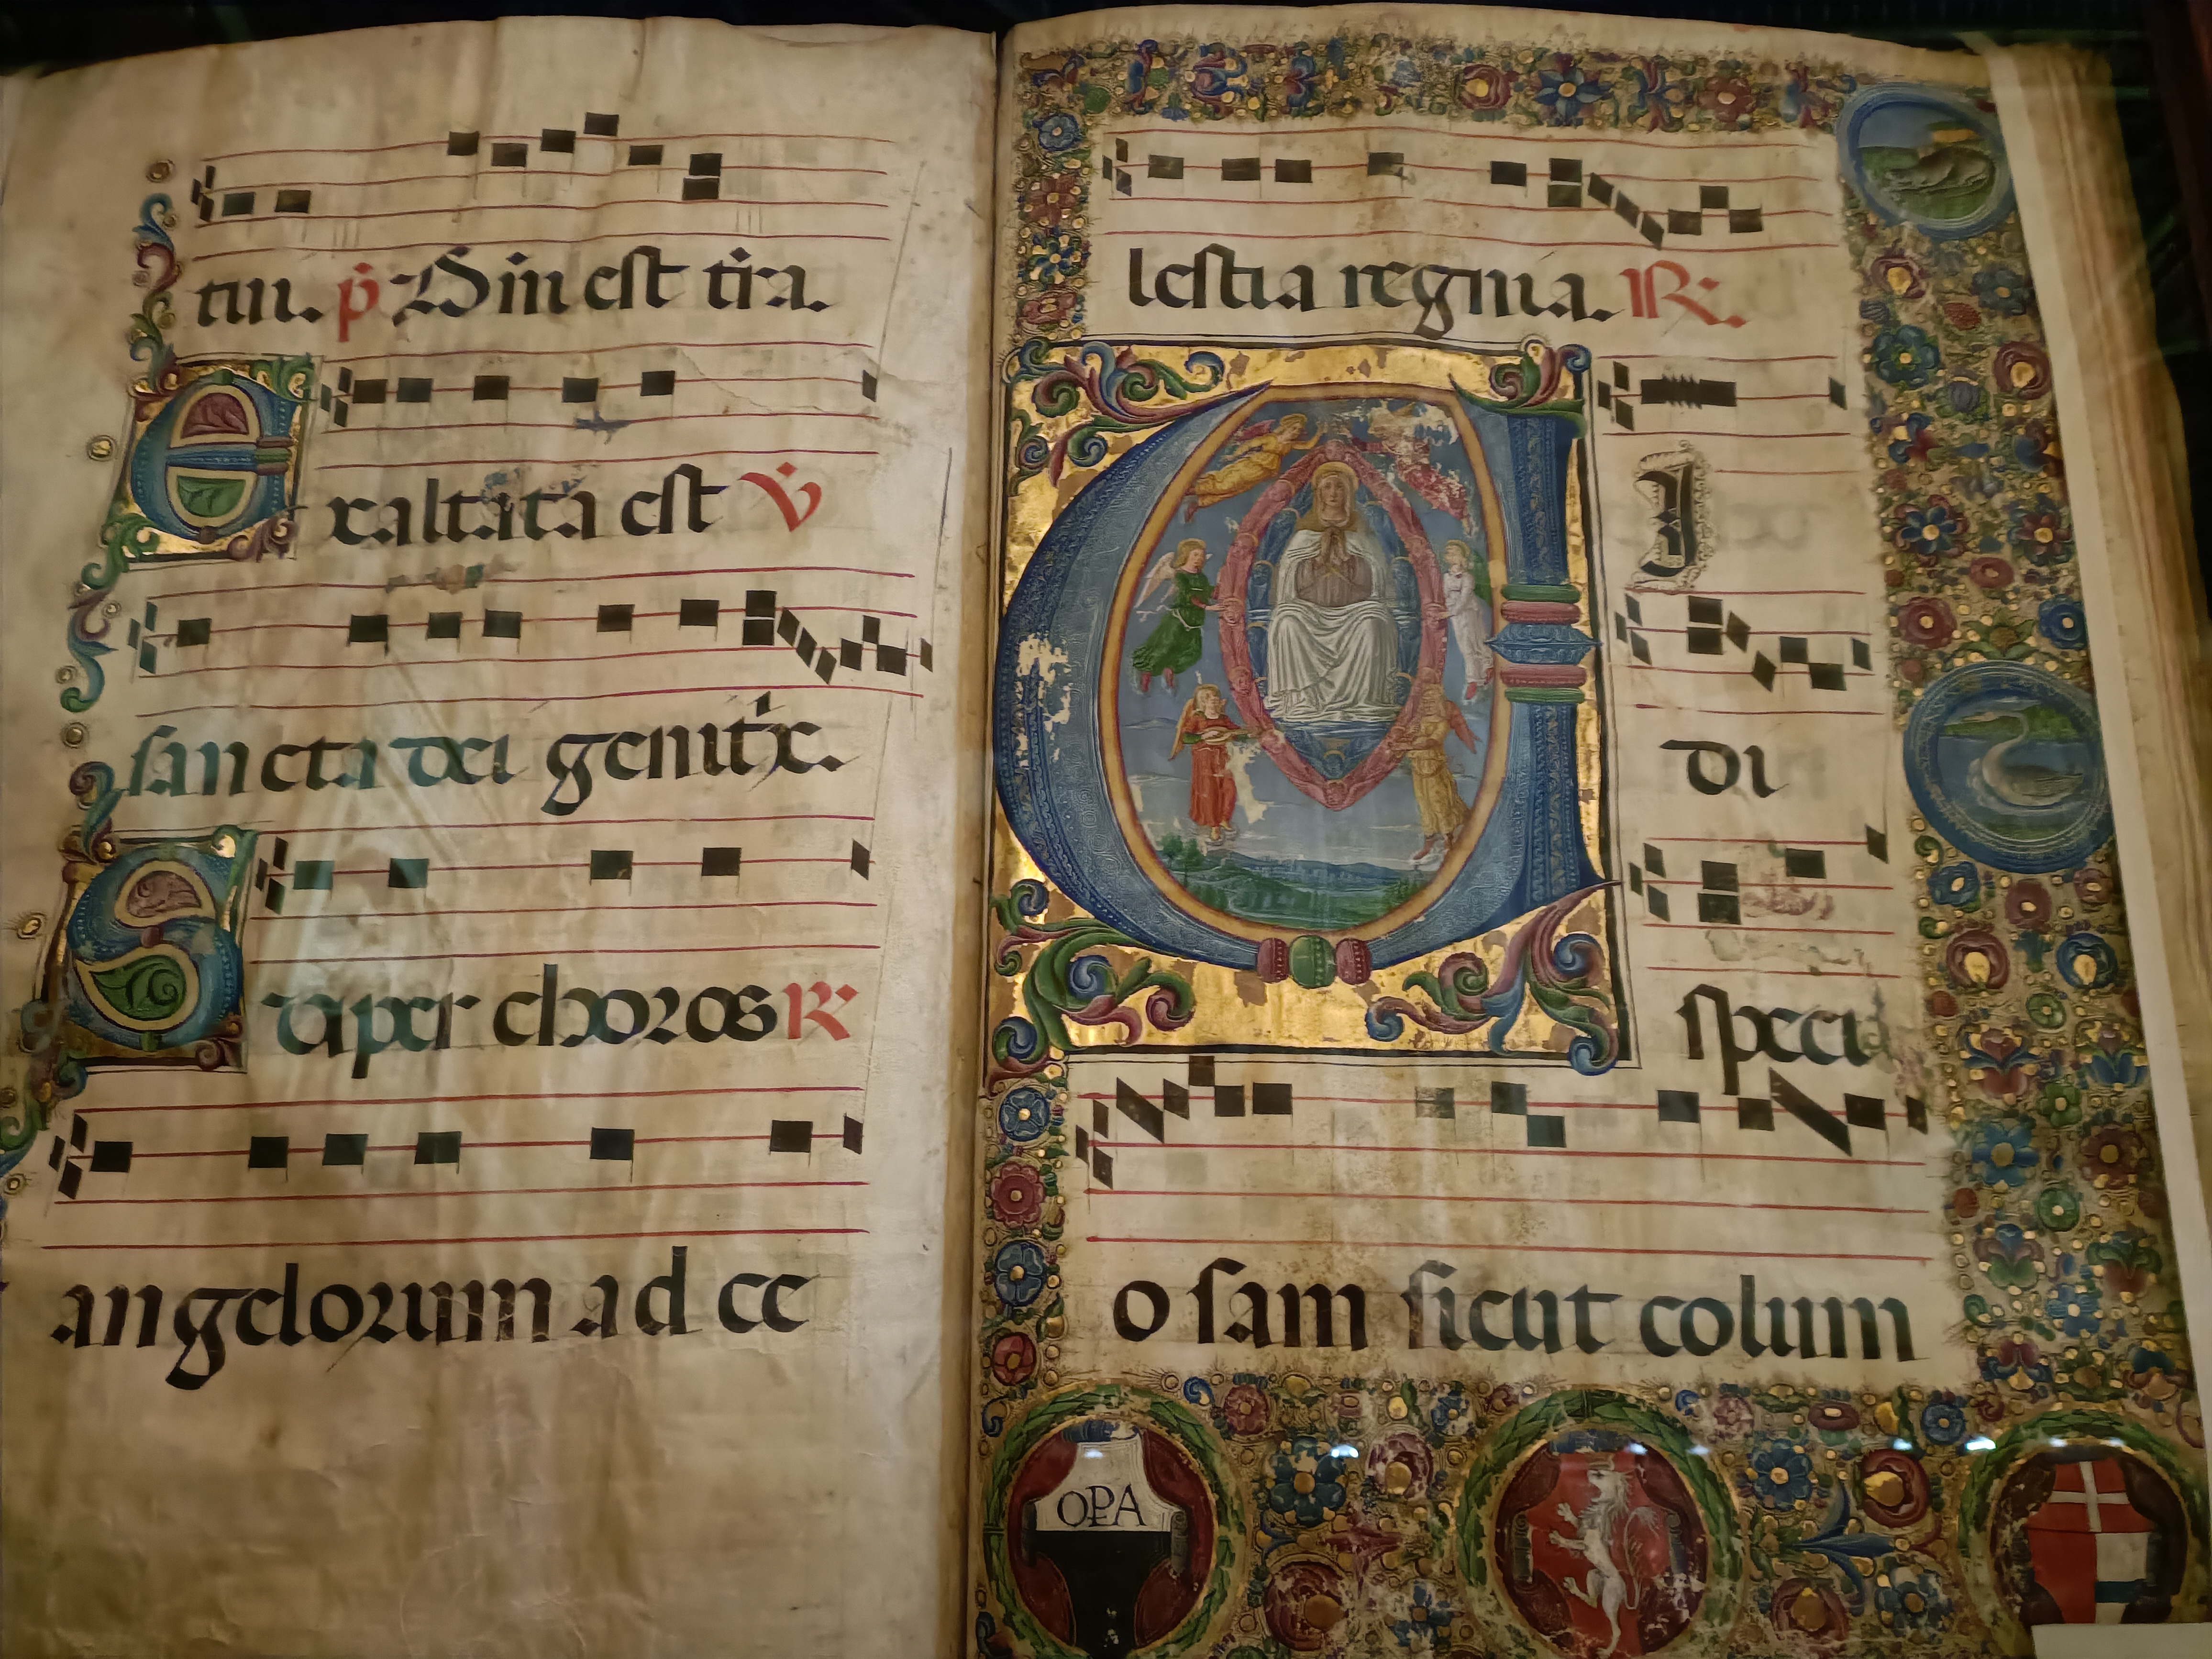 tui. p̄ Dñi est tr̄ra.
Exaltata est V̄
sancta dei genitx̄.
Super choros R̄
angelorum ad ce
lestia regnia. R̄.
VI
di
speci
osam sicut colum
OPA